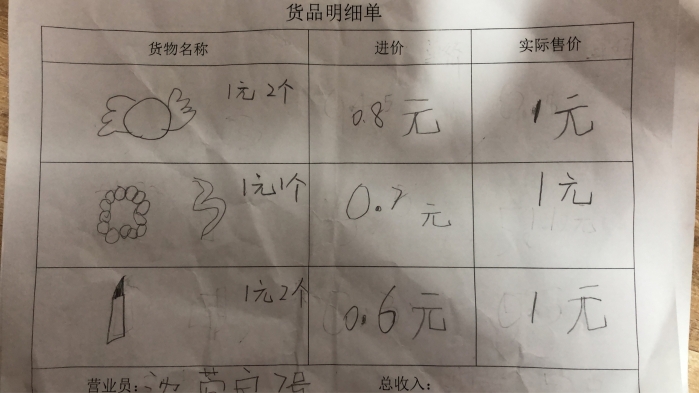 货品明细单
货物名称 进价 实际售价
1元2个 0.8元 1元
1元1个 0.7元 1元
1元2个 0.6元 1元
营业员: 总收入: